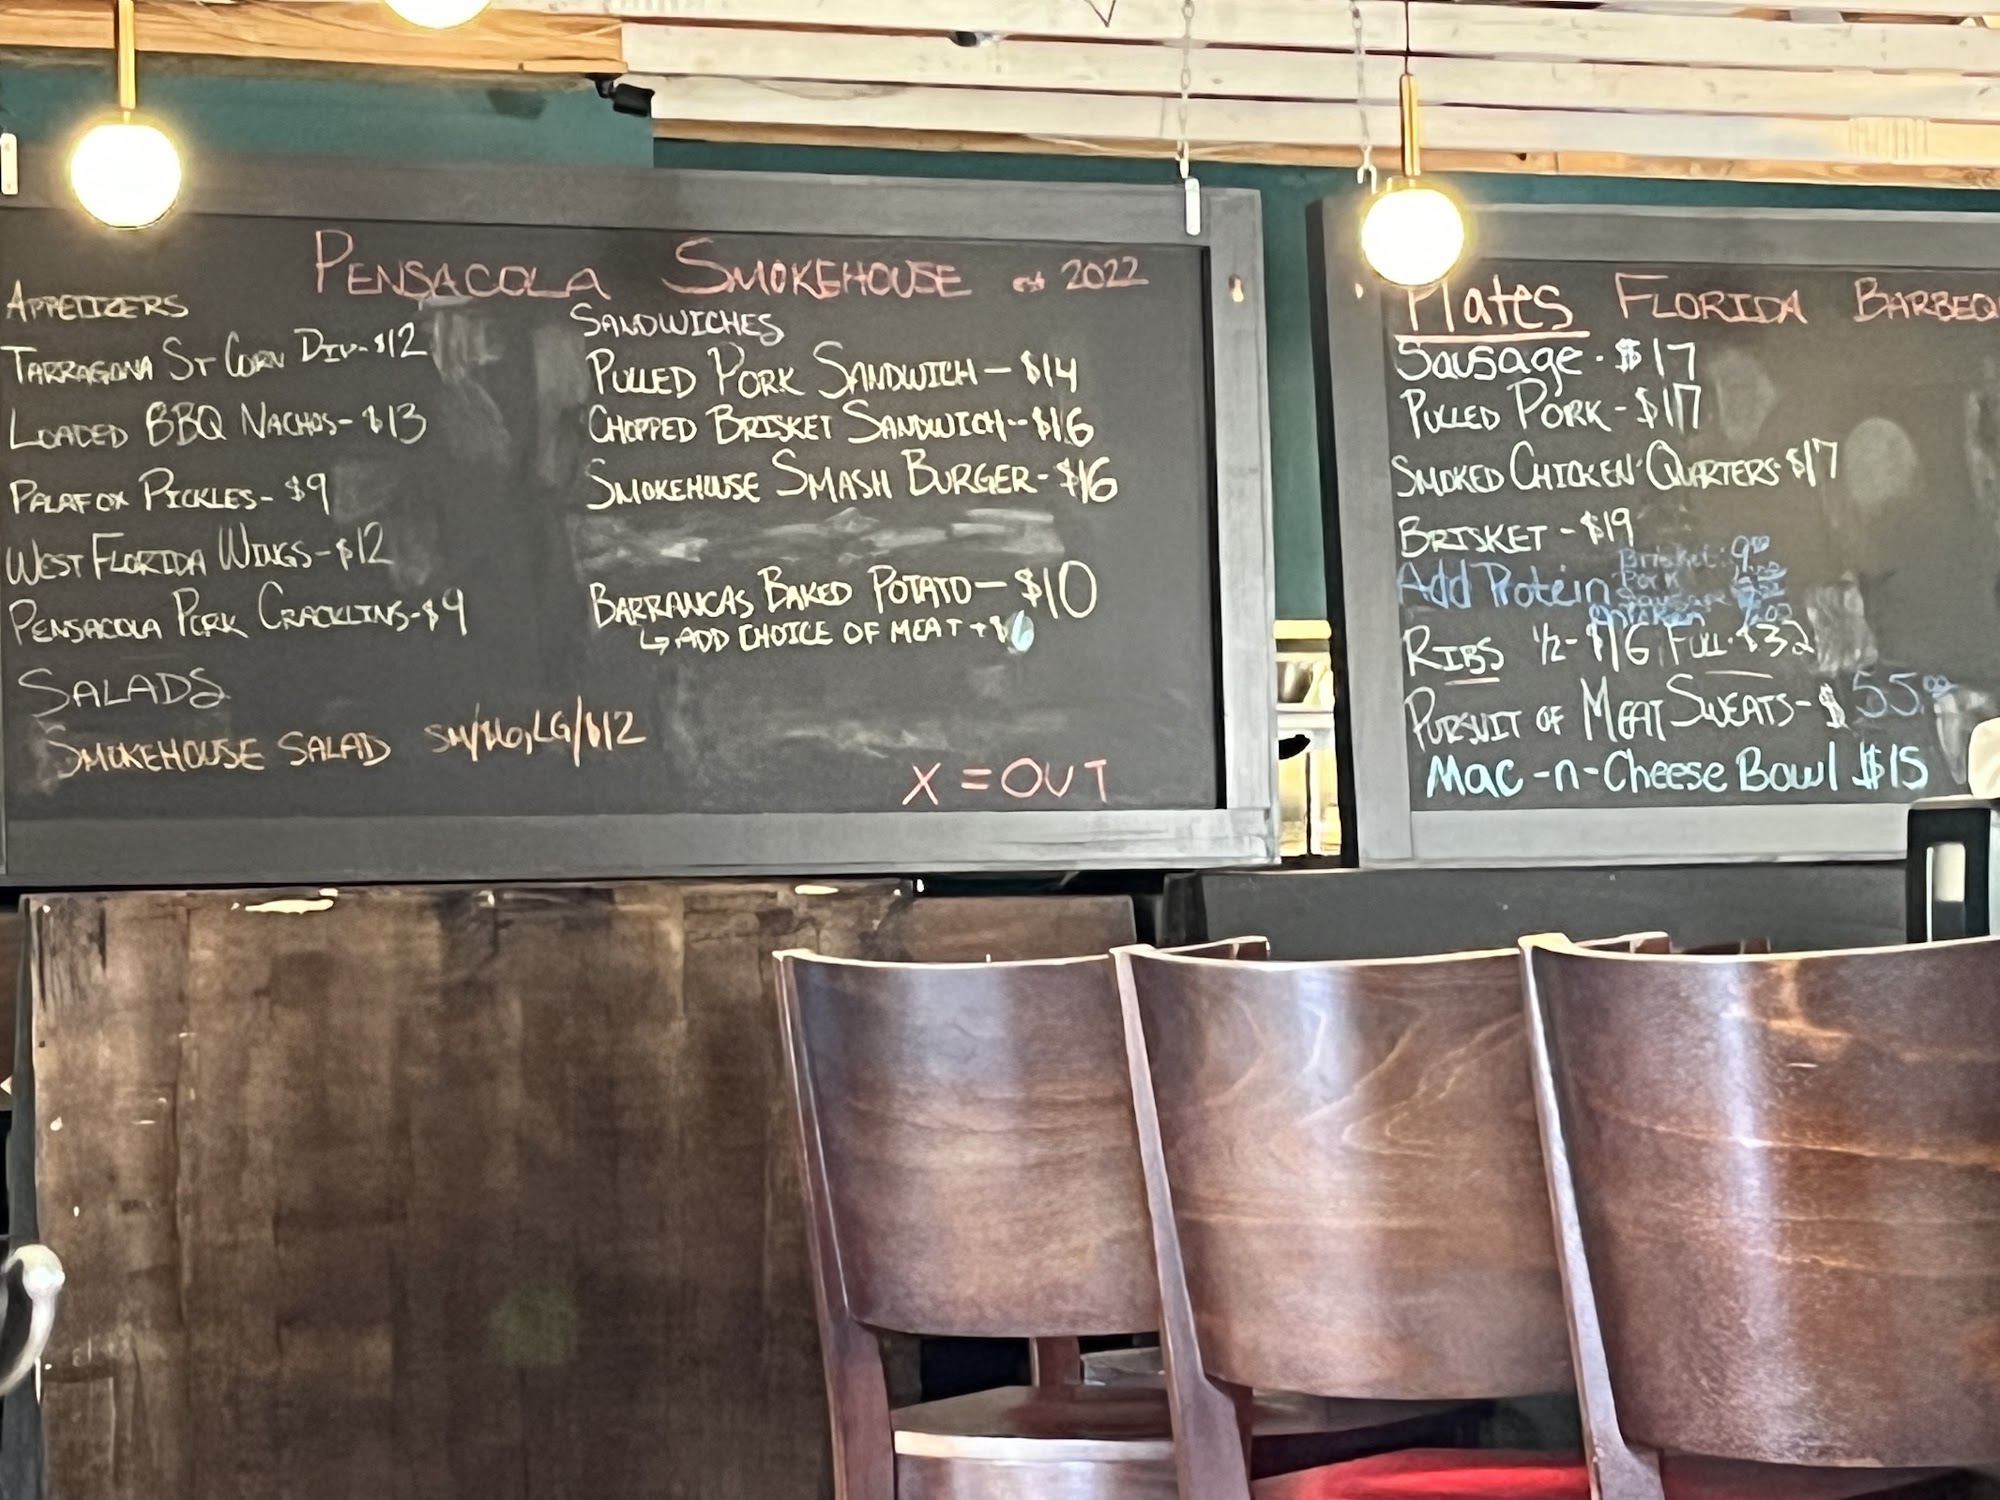 PENSACOLA SMOKEHOUSE est 2022
APPETIZERS
TARRAGONA ST CORN DIV-$12
LOADED BBQ NACHOS-$13
PALAFOX PICKLES-$9
WEST FLORIDA WINGS-$12
PENSACOLA PORK CRACKLINS-$9
SALADS
SMOKEHOUSE SALAD SM/$6,LG/$12
SANDWICHES
PULLED PORK SANDWICH-$14
CHOPPED BRISKET SANDWICH--$16
SMOKEHOUSE SMASH BURGER-$16
BARRANCAS BAKED POTATO-$10
↳ADD CHOICE OF MEAT+$6
X=OUT
Plates FLORIDA BARBEQ
Sausage-$17
PULLED PORK-$17
SMOKED CHICKEN QUARTERS-$17
BRISKET-$19
Add Protein
Brisket:
Pork
Chicken
RIBS 1/2-$16 FULL-$32
PURSUIT OF MEAT SWEATS-$55.00
Mac-n-Cheese Bowl $15